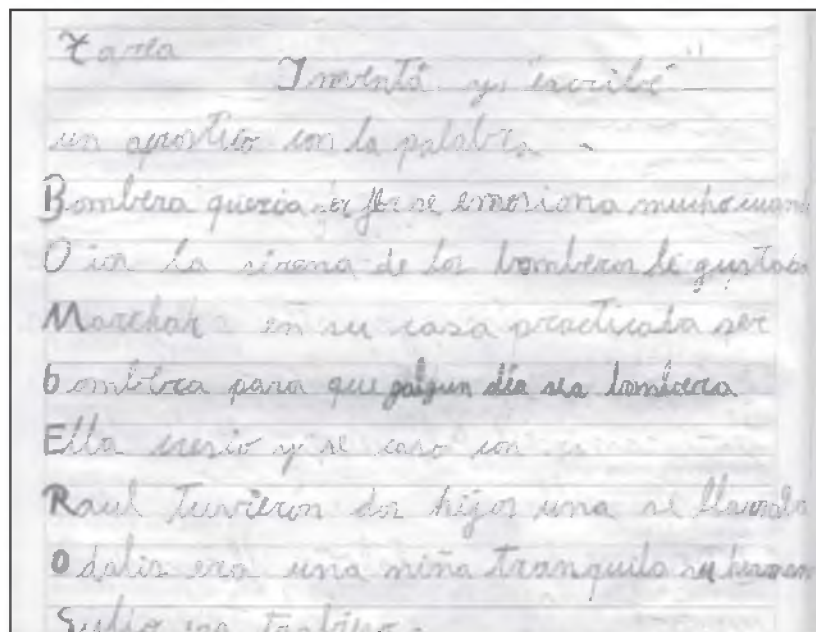 Tarea
Inventá y "escribe"
un acrostico con la palabra
Bombera queria ser se emosiona mucho cuand
Oia la sirena de los bomberos le gustaba
Marchar en su casa practicaba ser
bombera para que algun día sea bombera
Ella cresio y se caso con
Raul tuvieron dos hijos una se llamaba
Odalis era una niña tranquila su herman